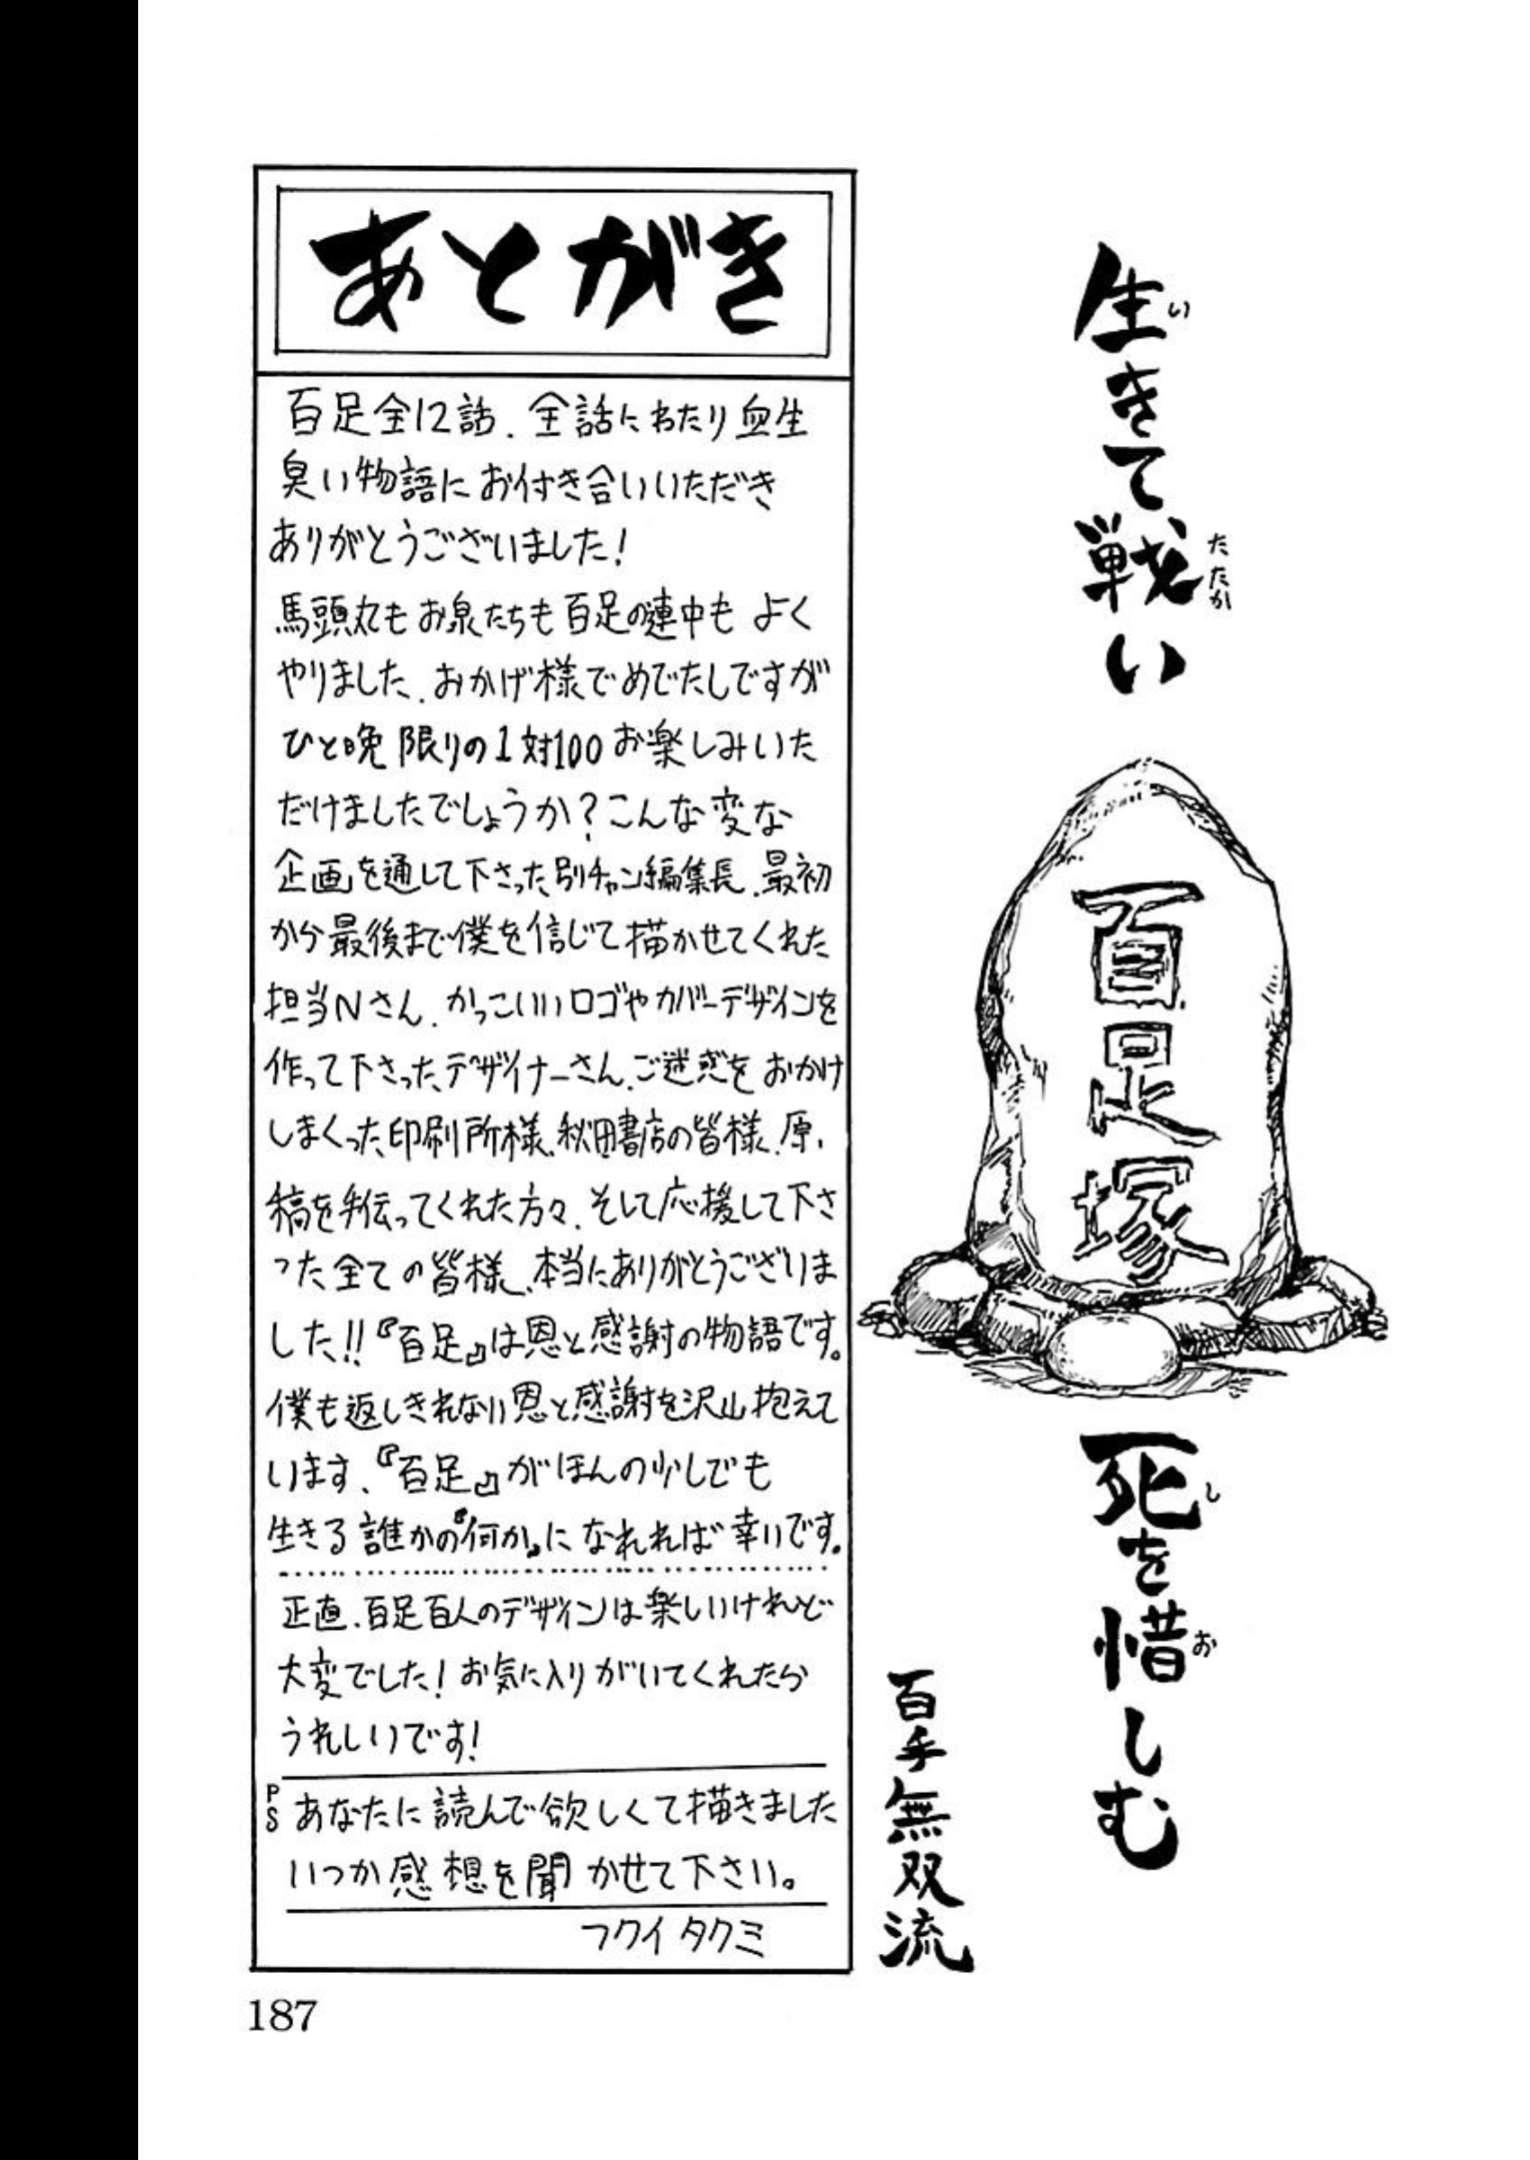 生きて戦い
百足塚
死を惜しむ
百手無双流
あとがき
百足全12話、全話にわたり血生
臭い物語にお付き合いいただき
ありがとうございました!
馬頭丸もお泉たちも百足の連中もよく
やりました、おかげ様でめでたしですが
ひと晩限りの1対100お楽しみいた
だけましたでしょうか?こんな変な
企画を通して下さった別チャン編集長、最初
から最後まで僕を信じて描かせてくれた
担当Nさん、かっこいいロゴやカバーデザインを
作って下さったデザイナーさん、ご迷惑をおかけ
しまくった印刷所様、秋田書店の皆様、原
稿を手伝ってくれた方々、そして応援して下さ
った全ての皆様、本当にありがとうございま
した!!『百足』は恩と感謝の物語です。
僕も返しきれない恩と感謝を沢山抱えて
います、『百足』がほんの少しでも
生きる誰かの『何か』になれれば幸いです。
正直、百足百人のデザインは楽しいけれど
大変でした!お気に入りがいてくれたら
うれしいです!
PS あなたに読んで欲しくて描きました
いつか感想を聞かせて下さい。
フクイタクミ
187